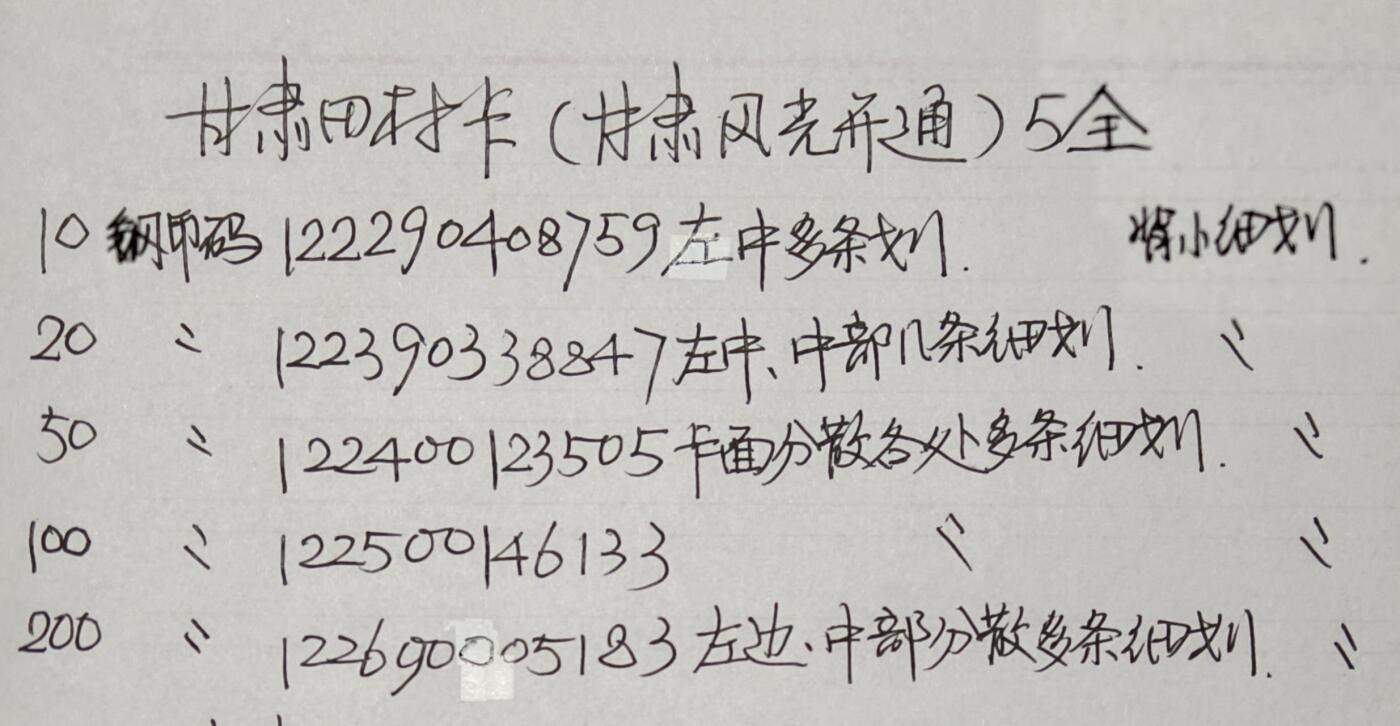 甘肃田村卡(甘肃风光开通)5全
10 钢印码 122290408759左中多条划. 小细划.
20 〃 122390338847左中、中部几条细划. 〃
50 〃 122400123505卡面分散各处多条细划. 〃
100 〃 122500146133 〃 〃
200 〃 122690005183 左边、中部分散多条细划. 〃